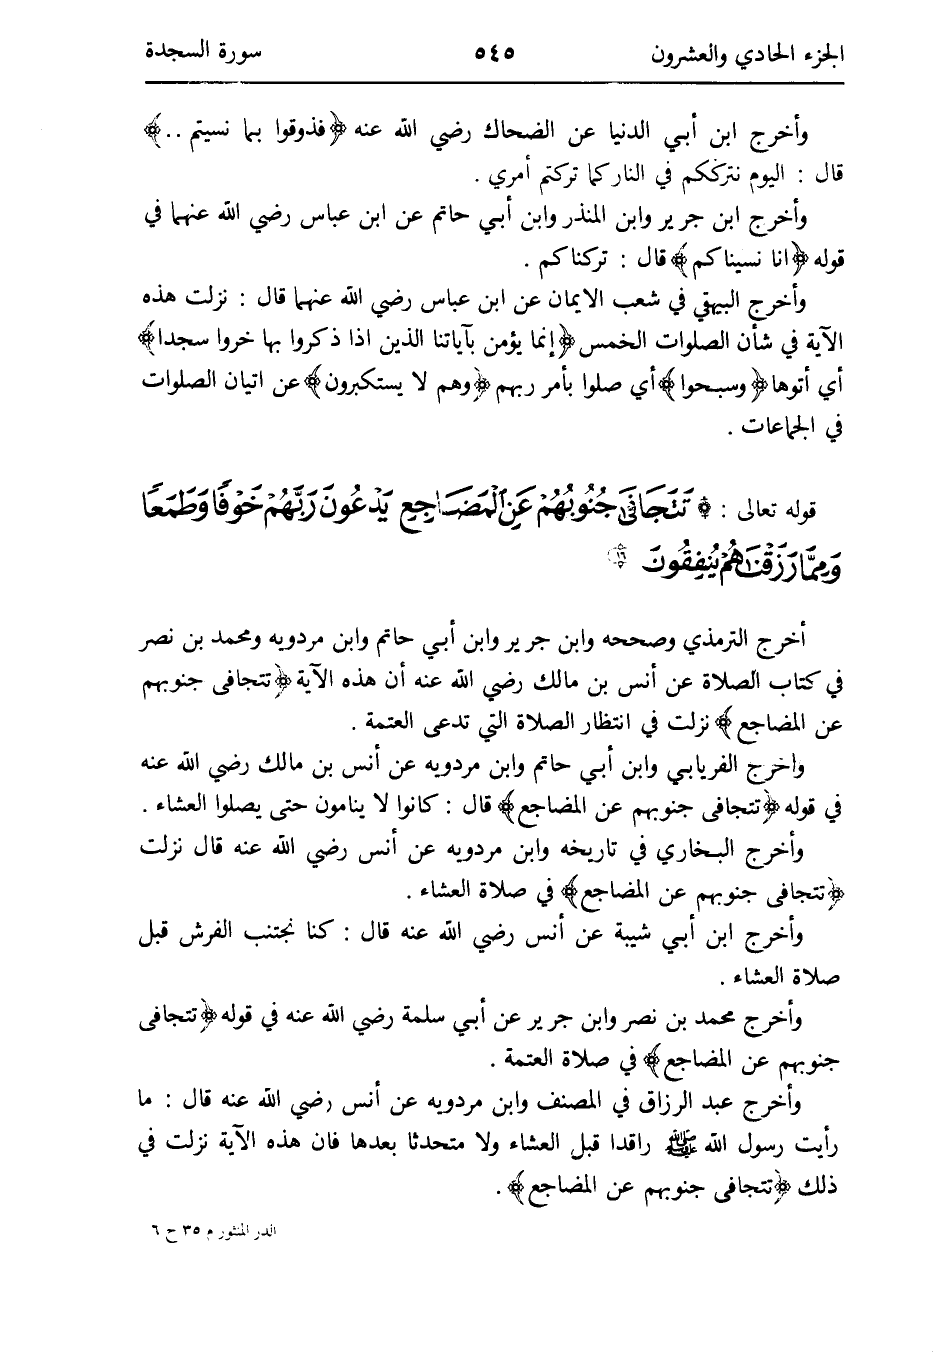 الجزء الحادي والعشرون ٥٤٥ سورة السجدة
وأخرج ابن أبي الدنيا عن الضحاك رضي الله عنه ﴿فذوقوا بما نسيتم ..﴾
قال : اليوم نترككم في النار كما تركتم أمري .
وأخرج ابن جرير وابن المنذر وابن أبي حاتم عن ابن عباس رضي الله عنهما في
قوله ﴿انا نسيناكم﴾ قال : تركناكم .
وأخرج البيهقي في شعب الايمان عن ابن عباس رضي الله عنهما قال : نزلت هذه
الآية في شأن الصلوات الخمس ﴿إنما يؤمن بآياتنا الذين اذا ذكروا بها خروا سجدا﴾
أي أتوها ﴿وسبحوا﴾ أي صلوا بأمر ربهم ﴿وهم لا يستكبرون﴾ عن اتيان الصلوات
في الجماعات .
قوله تعالى : ﴿ تَتَجَافَىٰ جُنُوبُهُمْ عَنِ ٱلْمَضَاجِعِ يَدْعُونَ رَبَّهُمْ خَوْفًا وَطَمَعًا
وَمِمَّا رَزَقْنَاهُمْ يُنفِقُونَ ١٦
أخرج الترمذي وصححه وابن جرير وابن أبي حاتم وابن مردويه ومحمد بن نصر
في كتاب الصلاة عن أنس بن مالك رضي الله عنه أن هذه الآية ﴿تتجافى جنوبهم
عن المضاجع﴾ نزلت في انتظار الصلاة التي تدعى العتمة .
واخرج الفريابي وابن أبي حاتم وابن مردويه عن أنس بن مالك رضي الله عنه
في قوله ﴿تتجافى جنوبهم عن المضاجع﴾ قال : كانوا لا ينامون حتى يصلوا العشاء .
وأخرج البخاري في تاريخه وابن مردويه عن أنس رضي الله عنه قال نزلت
﴿تتجافى جنوبهم عن المضاجع﴾ في صلاة العشاء .
وأخرج ابن أبي شيبة عن أنس رضي الله عنه قال : كنا نجتنب الفرش قبل
صلاة العشاء .
وأخرج محمد بن نصر وابن جرير عن أبي سلمة رضي الله عنه في قوله ﴿تتجافى
جنوبهم عن المضاجع﴾ في صلاة العتمة .
وأخرج عبد الرزاق في المصنف وابن مردويه عن أنس رضي الله عنه قال : ما
رأيت رسول الله ﷺ راقدا قبل العشاء ولا متحدثا بعدها فان هذه الآية نزلت في
ذلك ﴿تتجافى جنوبهم عن المضاجع﴾ .
الدر المنثور م ٣٥ ج ٦